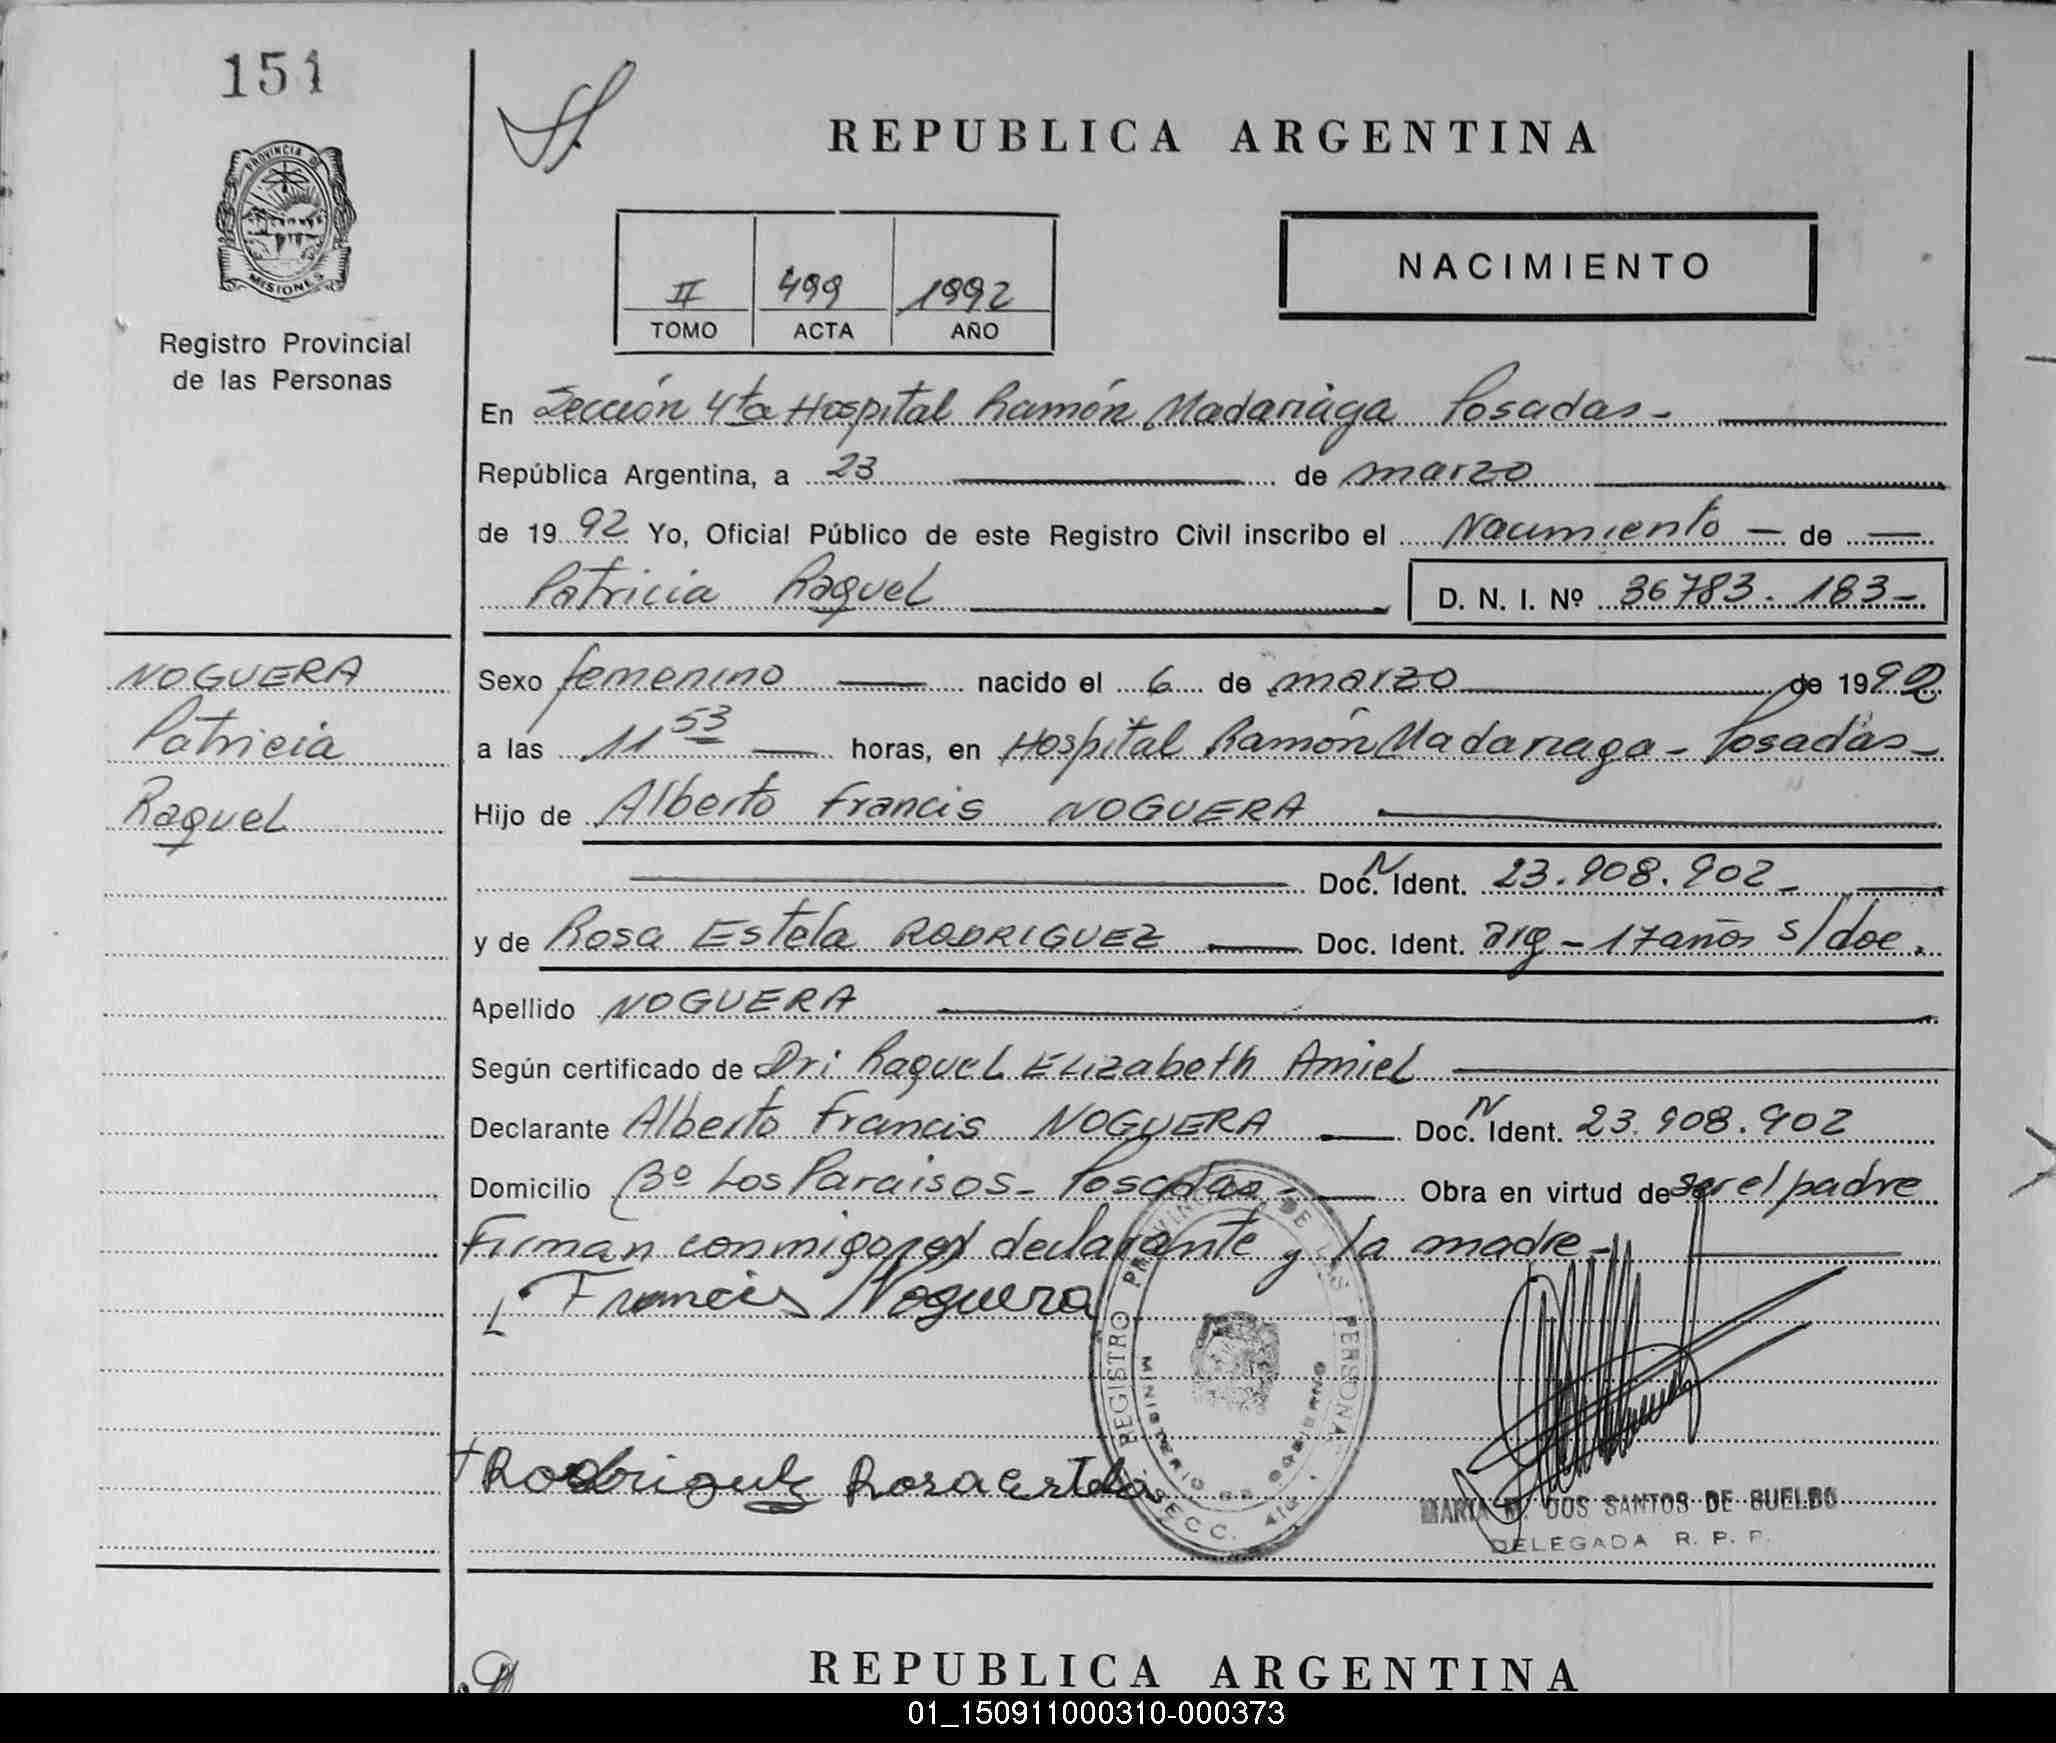 151
PROVINCIA DE
MISIONES
Registro Provincial
de las Personas
REPUBLICA ARGENTINA
II 499 1992
TOMO ACTA AÑO
NACIMIENTO
En Sección 4ta Hospital Ramón Madariaga Posadas -
República Argentina, a 23 de marzo
de 1992 Yo, Oficial Público de este Registro Civil inscribo el Nacimiento — de —
Patricia Raquel D. N. I. Nº 36783.183-
NOGUERA
Patricia
Raquel
Sexo femenino — nacido el 6 de marzo de 1992
a las 11 53 — horas, en Hospital Ramón Madariaga - Posadas -
Hijo de Alberto Francis NOGUERA
N
Doc. Ident. 23.908.902 -
y de Rosa Estela RODRIGUEZ — Doc. Ident. arg - 17 años s/doc.
Apellido NOGUERA
Según certificado de Dri Raquel Elizabeth Amiel
Declarante Alberto Francis NOGUERA — Doc. N Ident. 23.908.902
Domicilio Bº Los Paraisos - Posadas - Obra en virtud de ser el padre
Firman conmigo el declarante y la madre -
Francis Noguera
REGISTRO PROVINCIAL DE LAS PERSONAS
MINISTERIO DE GOBIERNO
SECC. 4ta
Rodriguez Rosa Estela
MARIA M. DOS SANTOS DE BUELBO
DELEGADA R. P. P.
REPUBLICA ARGENTINA
01_150911000310-000373